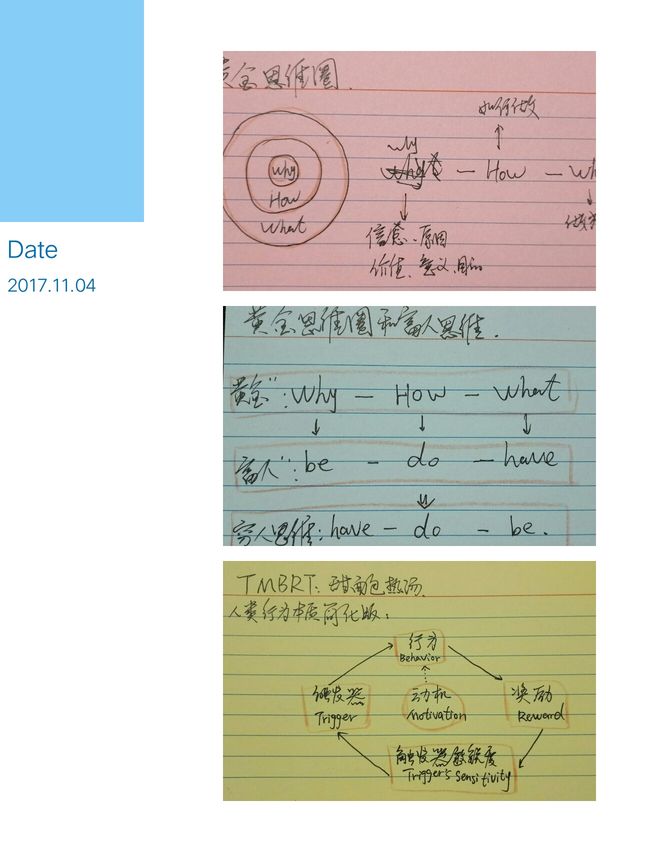 Date
2017.11.04
黄金思维圈.
如何做
why
Why
How
What
— How — Wh
信念、原因
价值、意义、目的
做
黄金思维圈和富人思维.
黄金": Why — How — What
富人": be — do — have
穷人思维: have — do — be.
TMBRT: 甜面包热汤.
人类行为本质简化版:
行为
Behavior
触发器
Trigger
动机
Motivation
奖励
Reward
触发器敏锐度
Trigger's Sensitivity